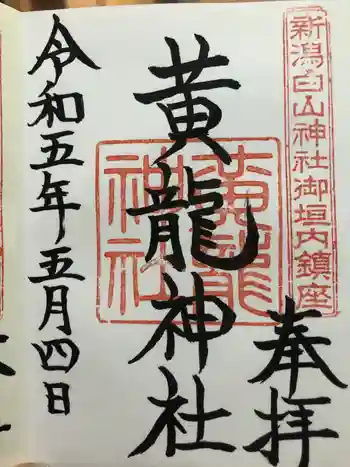 新潟白山神社御垣内鎮座
奉拝
黄龍神社
黄龍神社
令和五年五月四日